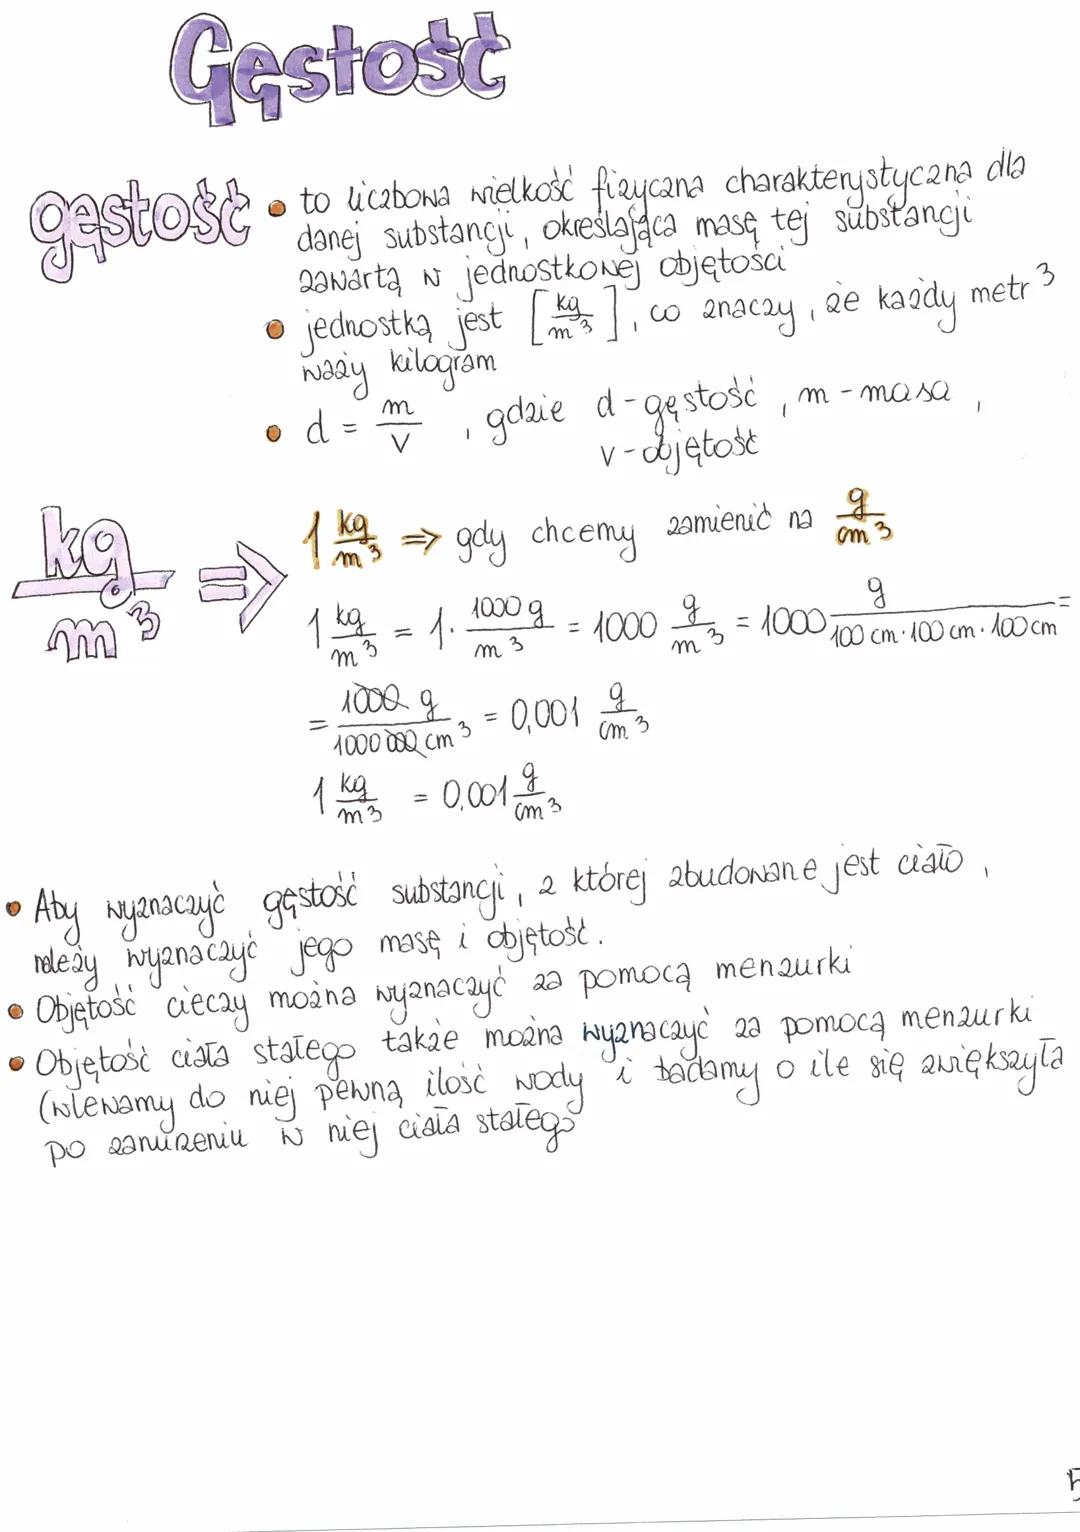 Gęstość
gęstość • to liczbowa wielkość fizyczna charakterystyczna dla
danej substancji, określająca masę tej substancji
zawartą w jednostkowej objętości
• jednostką jest [kg/m³], co znaczy, że każdy metr³
waży kilogram
• d = m/V, gdzie d - gęstość, m - masa,
v - objętość
kg/m³ ⇒ 1 kg/m³ ⇒ gdy chcemy zamienić na g/cm³
1 kg/m³ = 1 · 1000 g/m³ = 1000 g/m³ = 1000 g/100 cm · 100 cm · 100 cm =
= 1000 g/1000 000 cm³ = 0,001 g/cm³
1 kg/m³ = 0,001 g/cm³
• Aby wyznaczyć gęstość substancji, z której zbudowane jest ciało,
należy wyznaczyć jego masę i objętość.
• Objętość cieczy można wyznaczyć za pomocą menzurki
• Objętość ciała stałego także można wyznaczyć za pomocą menzurki
(wlewamy do niej pewną ilość wody i badamy o ile się zwiększyła
po zanurzeniu w niej ciała stałego
5